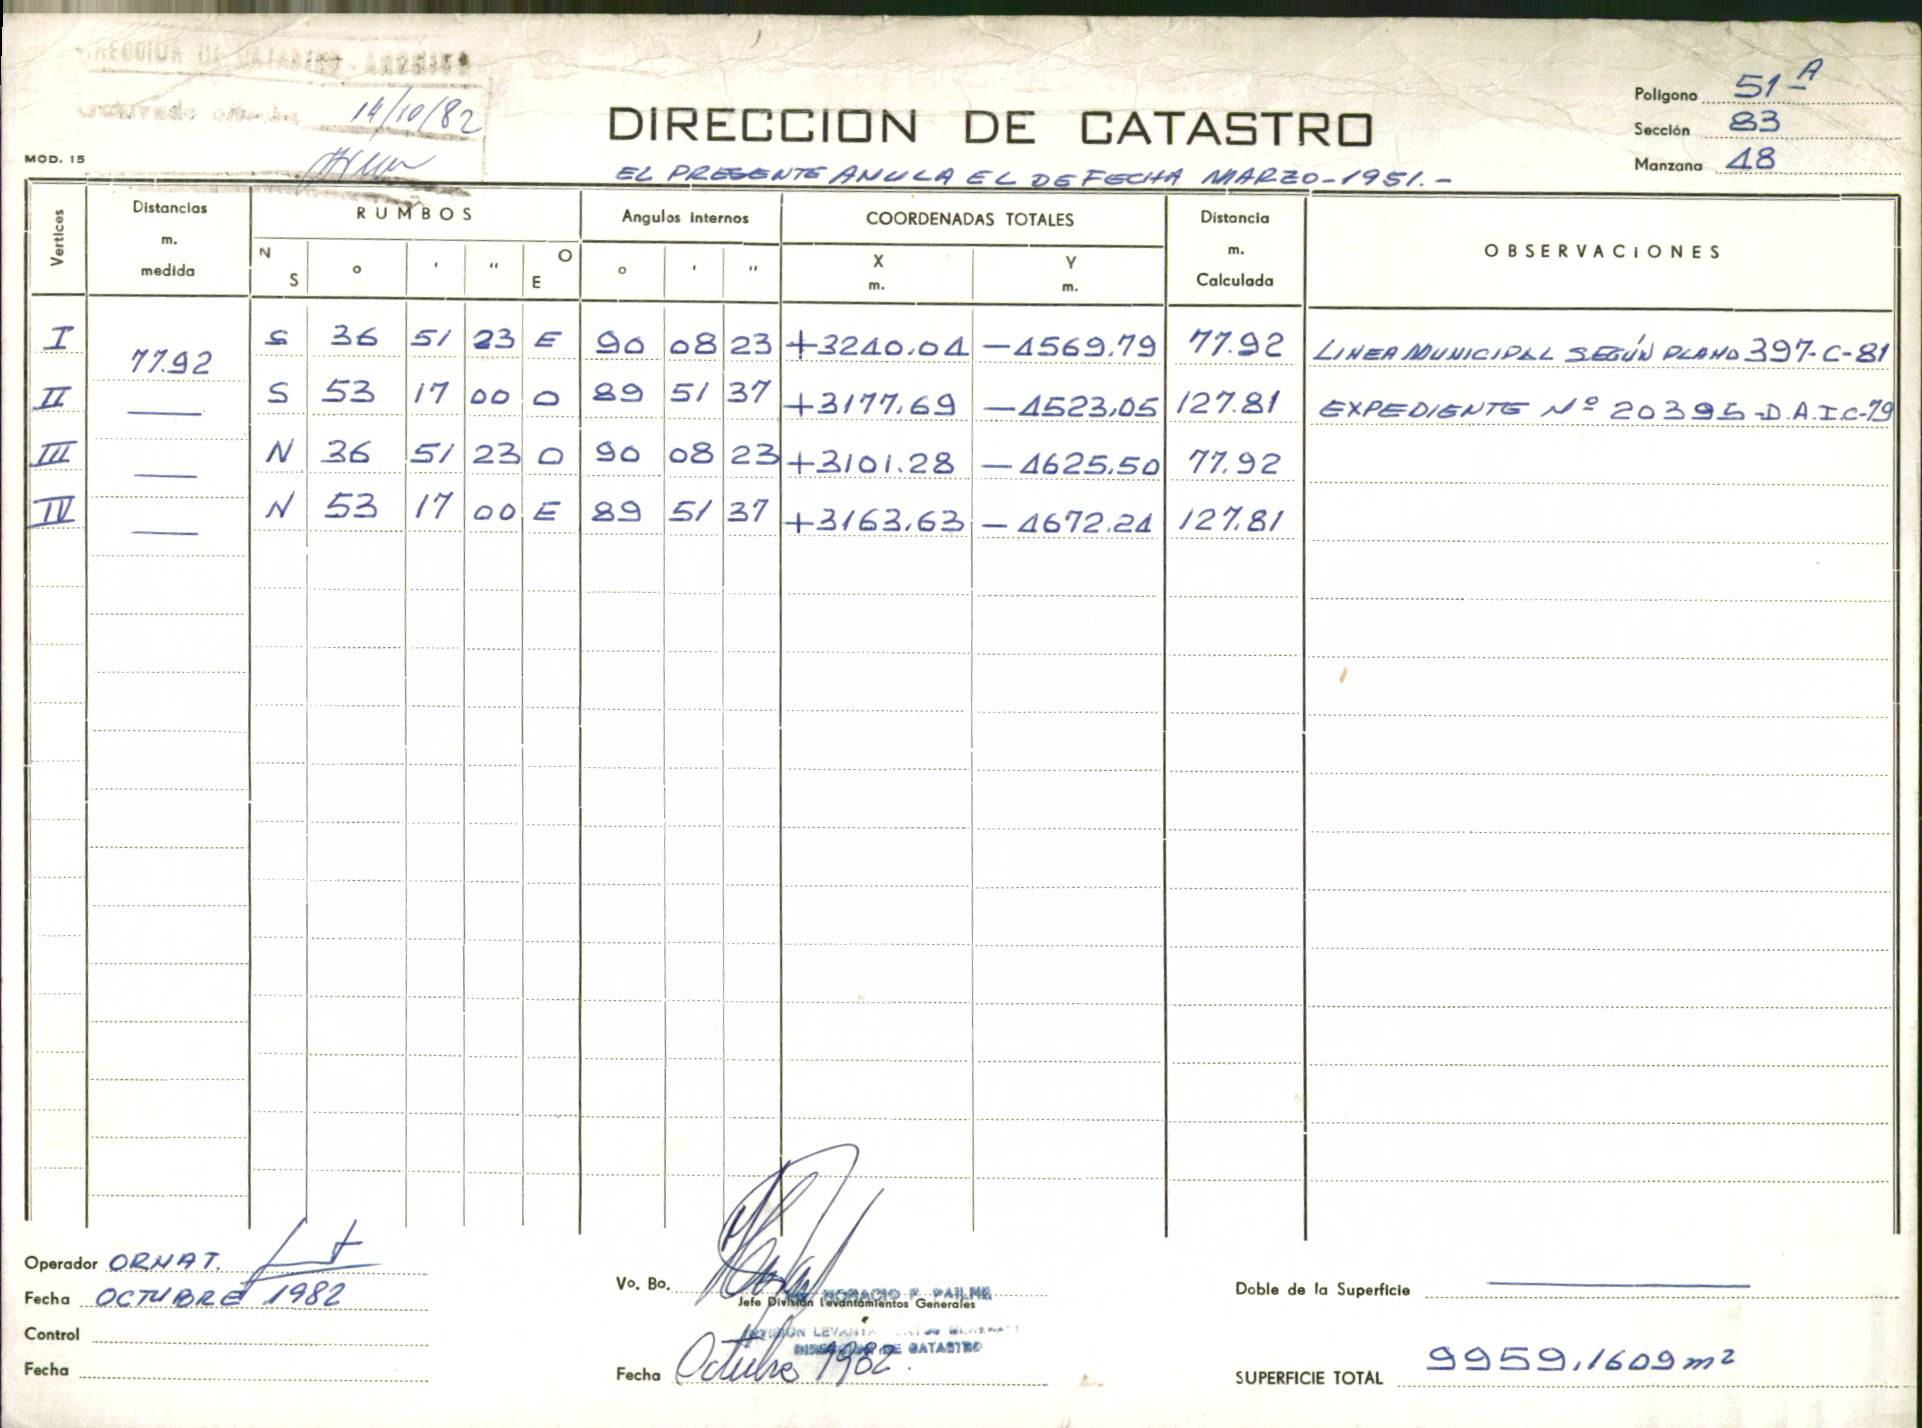 14/10/82
DIRECCION DE CATASTRO
EL PRESENTE ANULA EL DE FECHA MARZO-1951.-
Polígono 51-A
Sección 83
Manzana 48
MOD. 15
Vertices
Distancias m. medida
RUMBOS
N S ° ' " O E
Angulos internos
° ' "
COORDENADAS TOTALES
X m. Y m.
Distancia m. Calculada
OBSERVACIONES
I 77.92 S 36 51 23 E 90 08 23 +3240.04 -4569.79 77.92 LINEA MUNICIPAL SEGÚN PLANO 397-C-81
II — S 53 17 00 O 89 51 37 +3177.69 -4523.05 127.81 EXPEDIENTE Nº 20395-D.A.I.C-79
III — N 36 51 23 O 90 08 23 +3101.28 -4625.50 77.92
IV — N 53 17 00 E 89 51 37 +3163.63 -4672.24 127.81
Operador ORNAT.
Fecha OCTUBRE 1982
Control
Fecha
Vo. Bo.
HORACIO F.
Jefe División Levantamientos Generales
DIVISIÓN
DIRECCION DE CATASTRO
Fecha Octubre 1982.
Doble de la Superficie —
SUPERFICIE TOTAL 9959,1609 m²